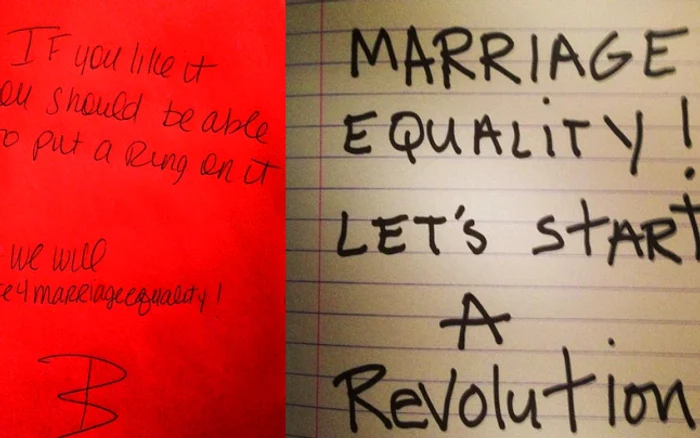 IF you like it
ou should be able
o put a Ring on it
we will
e4marriageequality!
B
MARRIAGE
EQUALITY!
LET'S START
A
Revolution